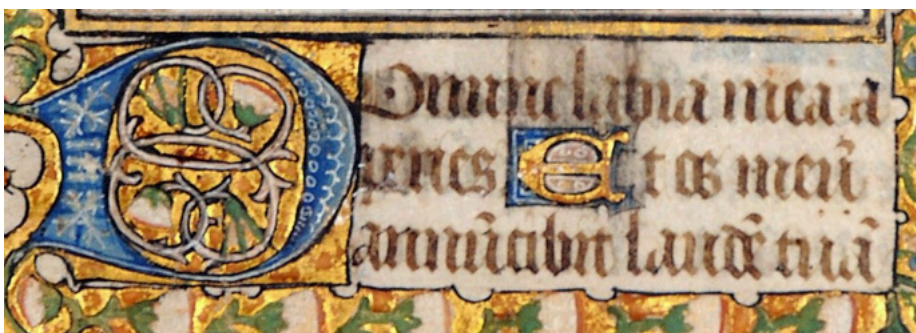 Domine labia mea a
peries. Et os meū
annūtibit laudē tuā